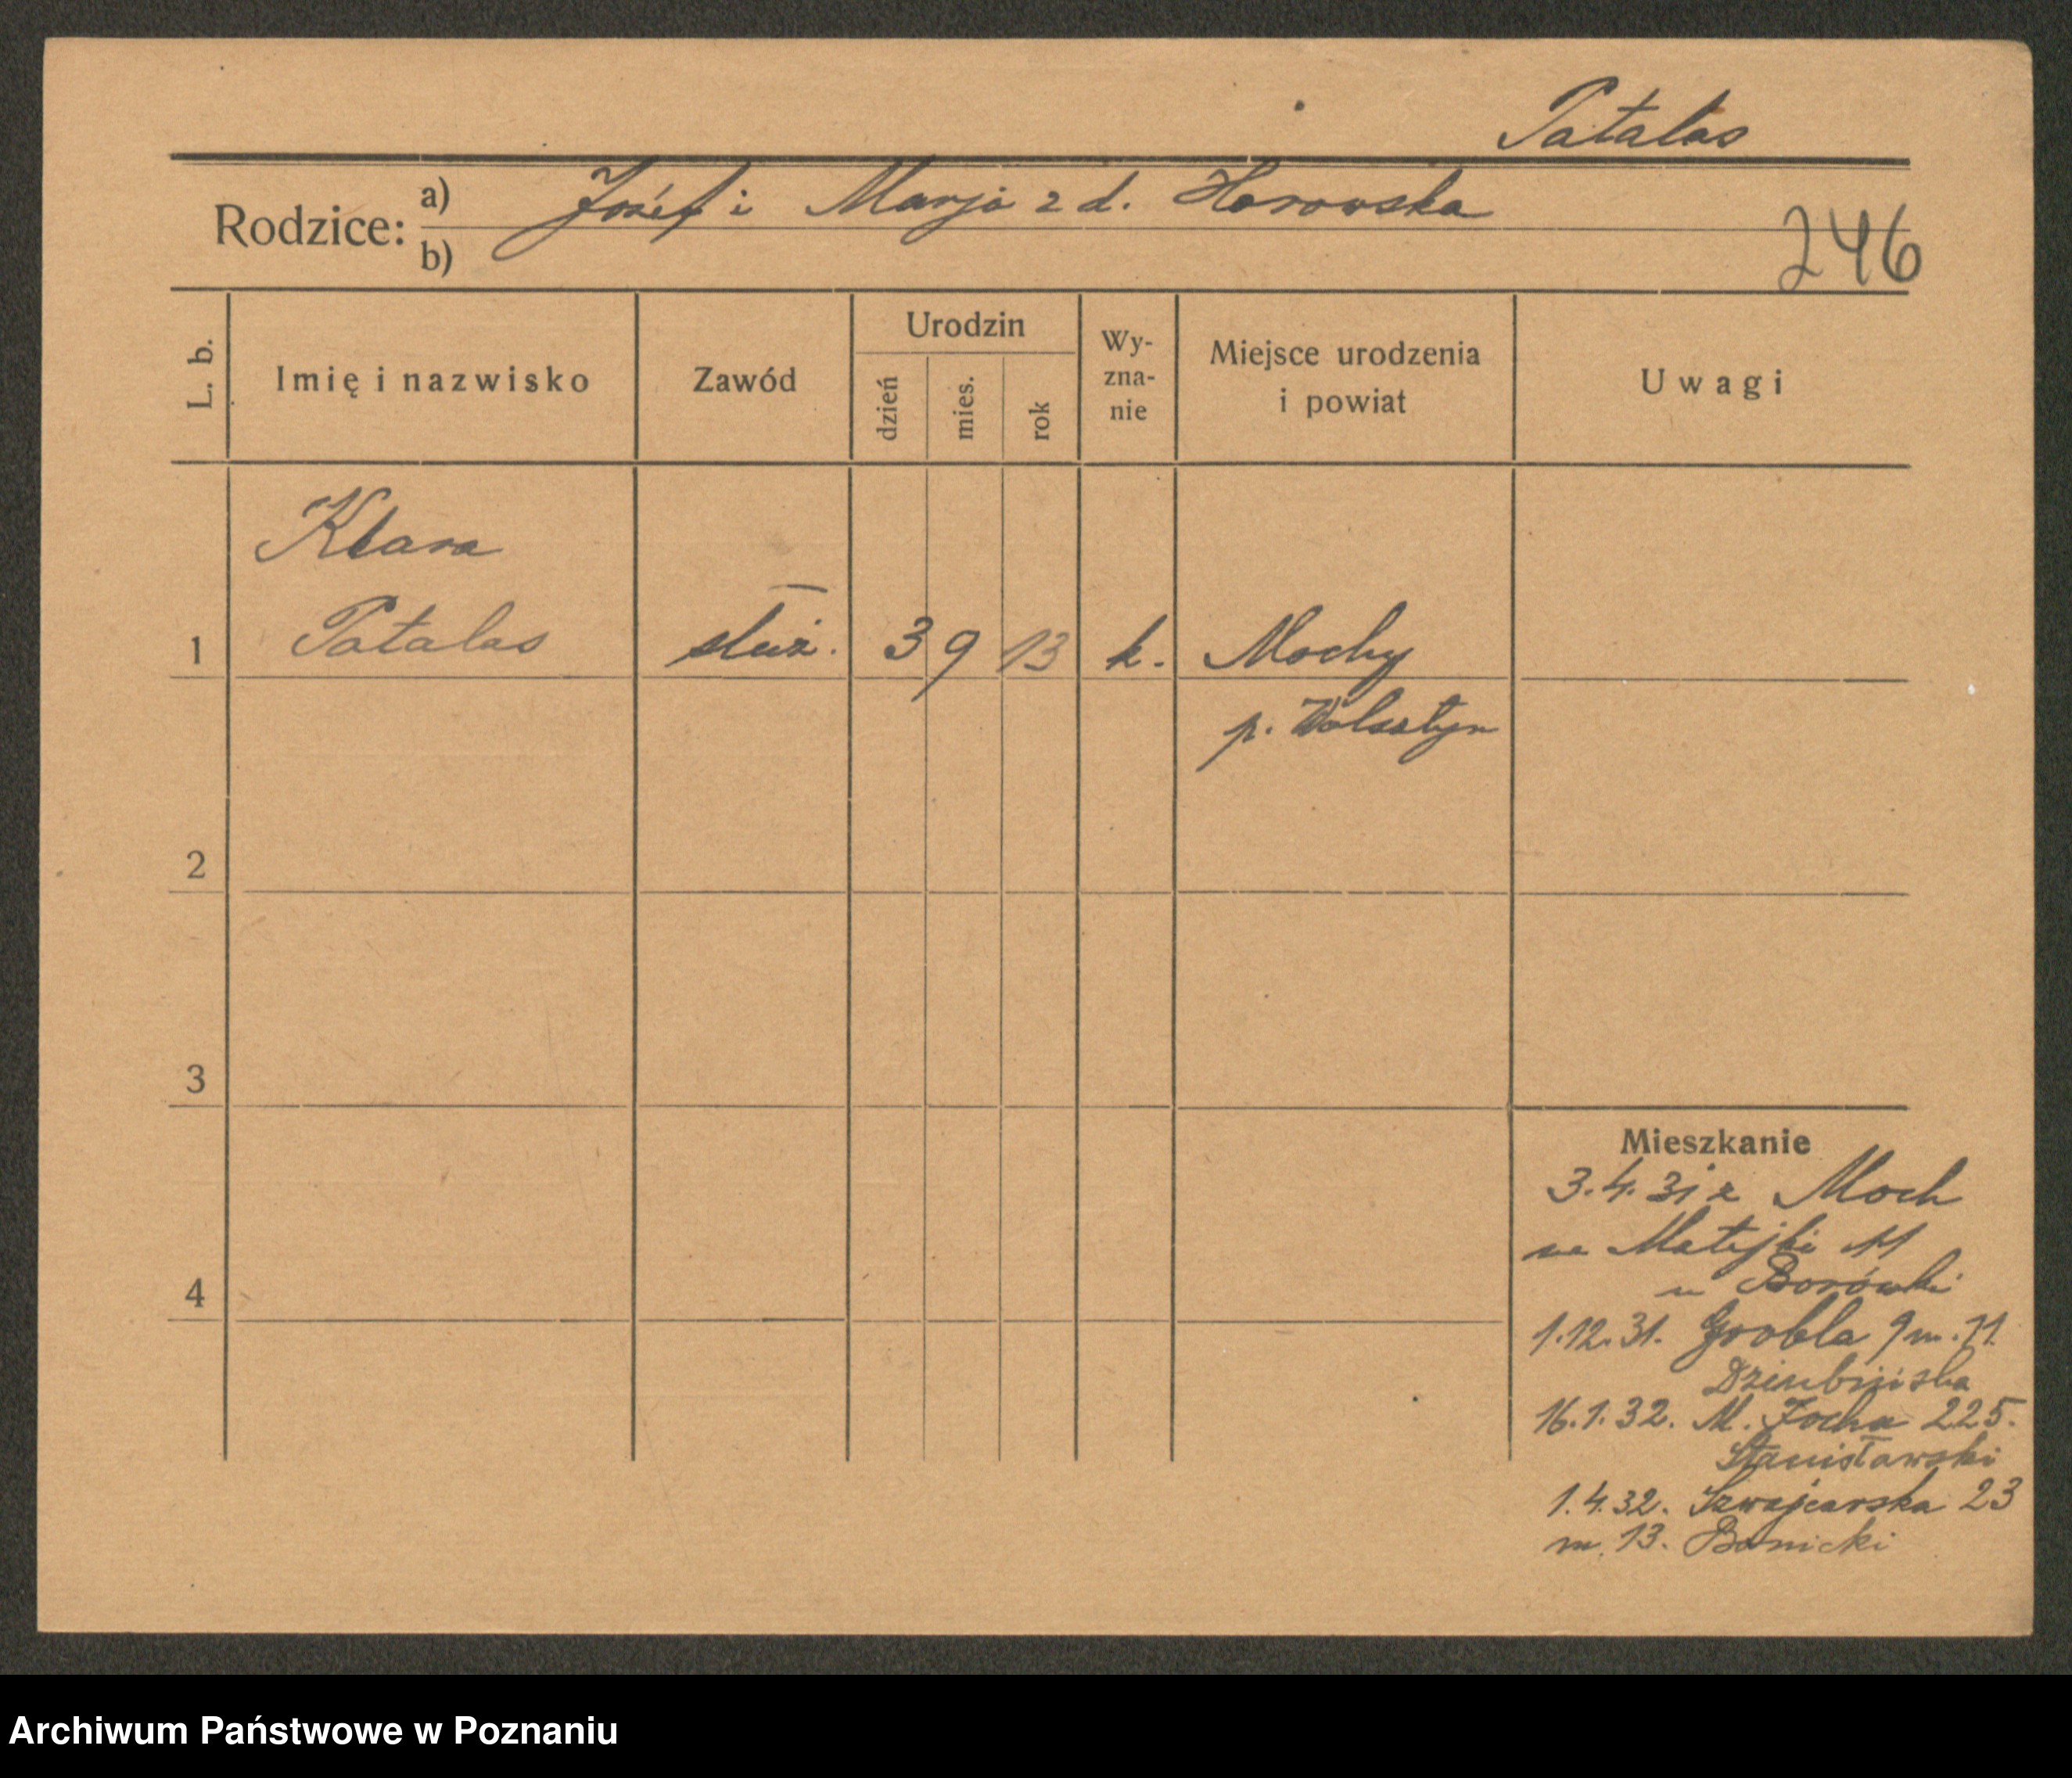 Patalas
Rodzice: a) Józef i Marja z d. Horowska
b)
246
L. b.
Imię i nazwisko
Zawód
Urodzin
dzień
mies.
rok
Wy-
zna-
nie
Miejsce urodzenia
i powiat
Uwagi
Klara
1 Patalas służ. 3 9 13 k. Mochy
p. Wolsztyn
2
3
4
Mieszkanie
3.4.31 z Moch
na Matejki 11
u Borówki
1.12.31. Grobla 9 m. 11
Dziubińska
16.1.32. M. Focha 225.
Stanisławski
1.4.32. Szwajcarska 23
m. 13. Banicki
Archiwum Państwowe w Poznaniu